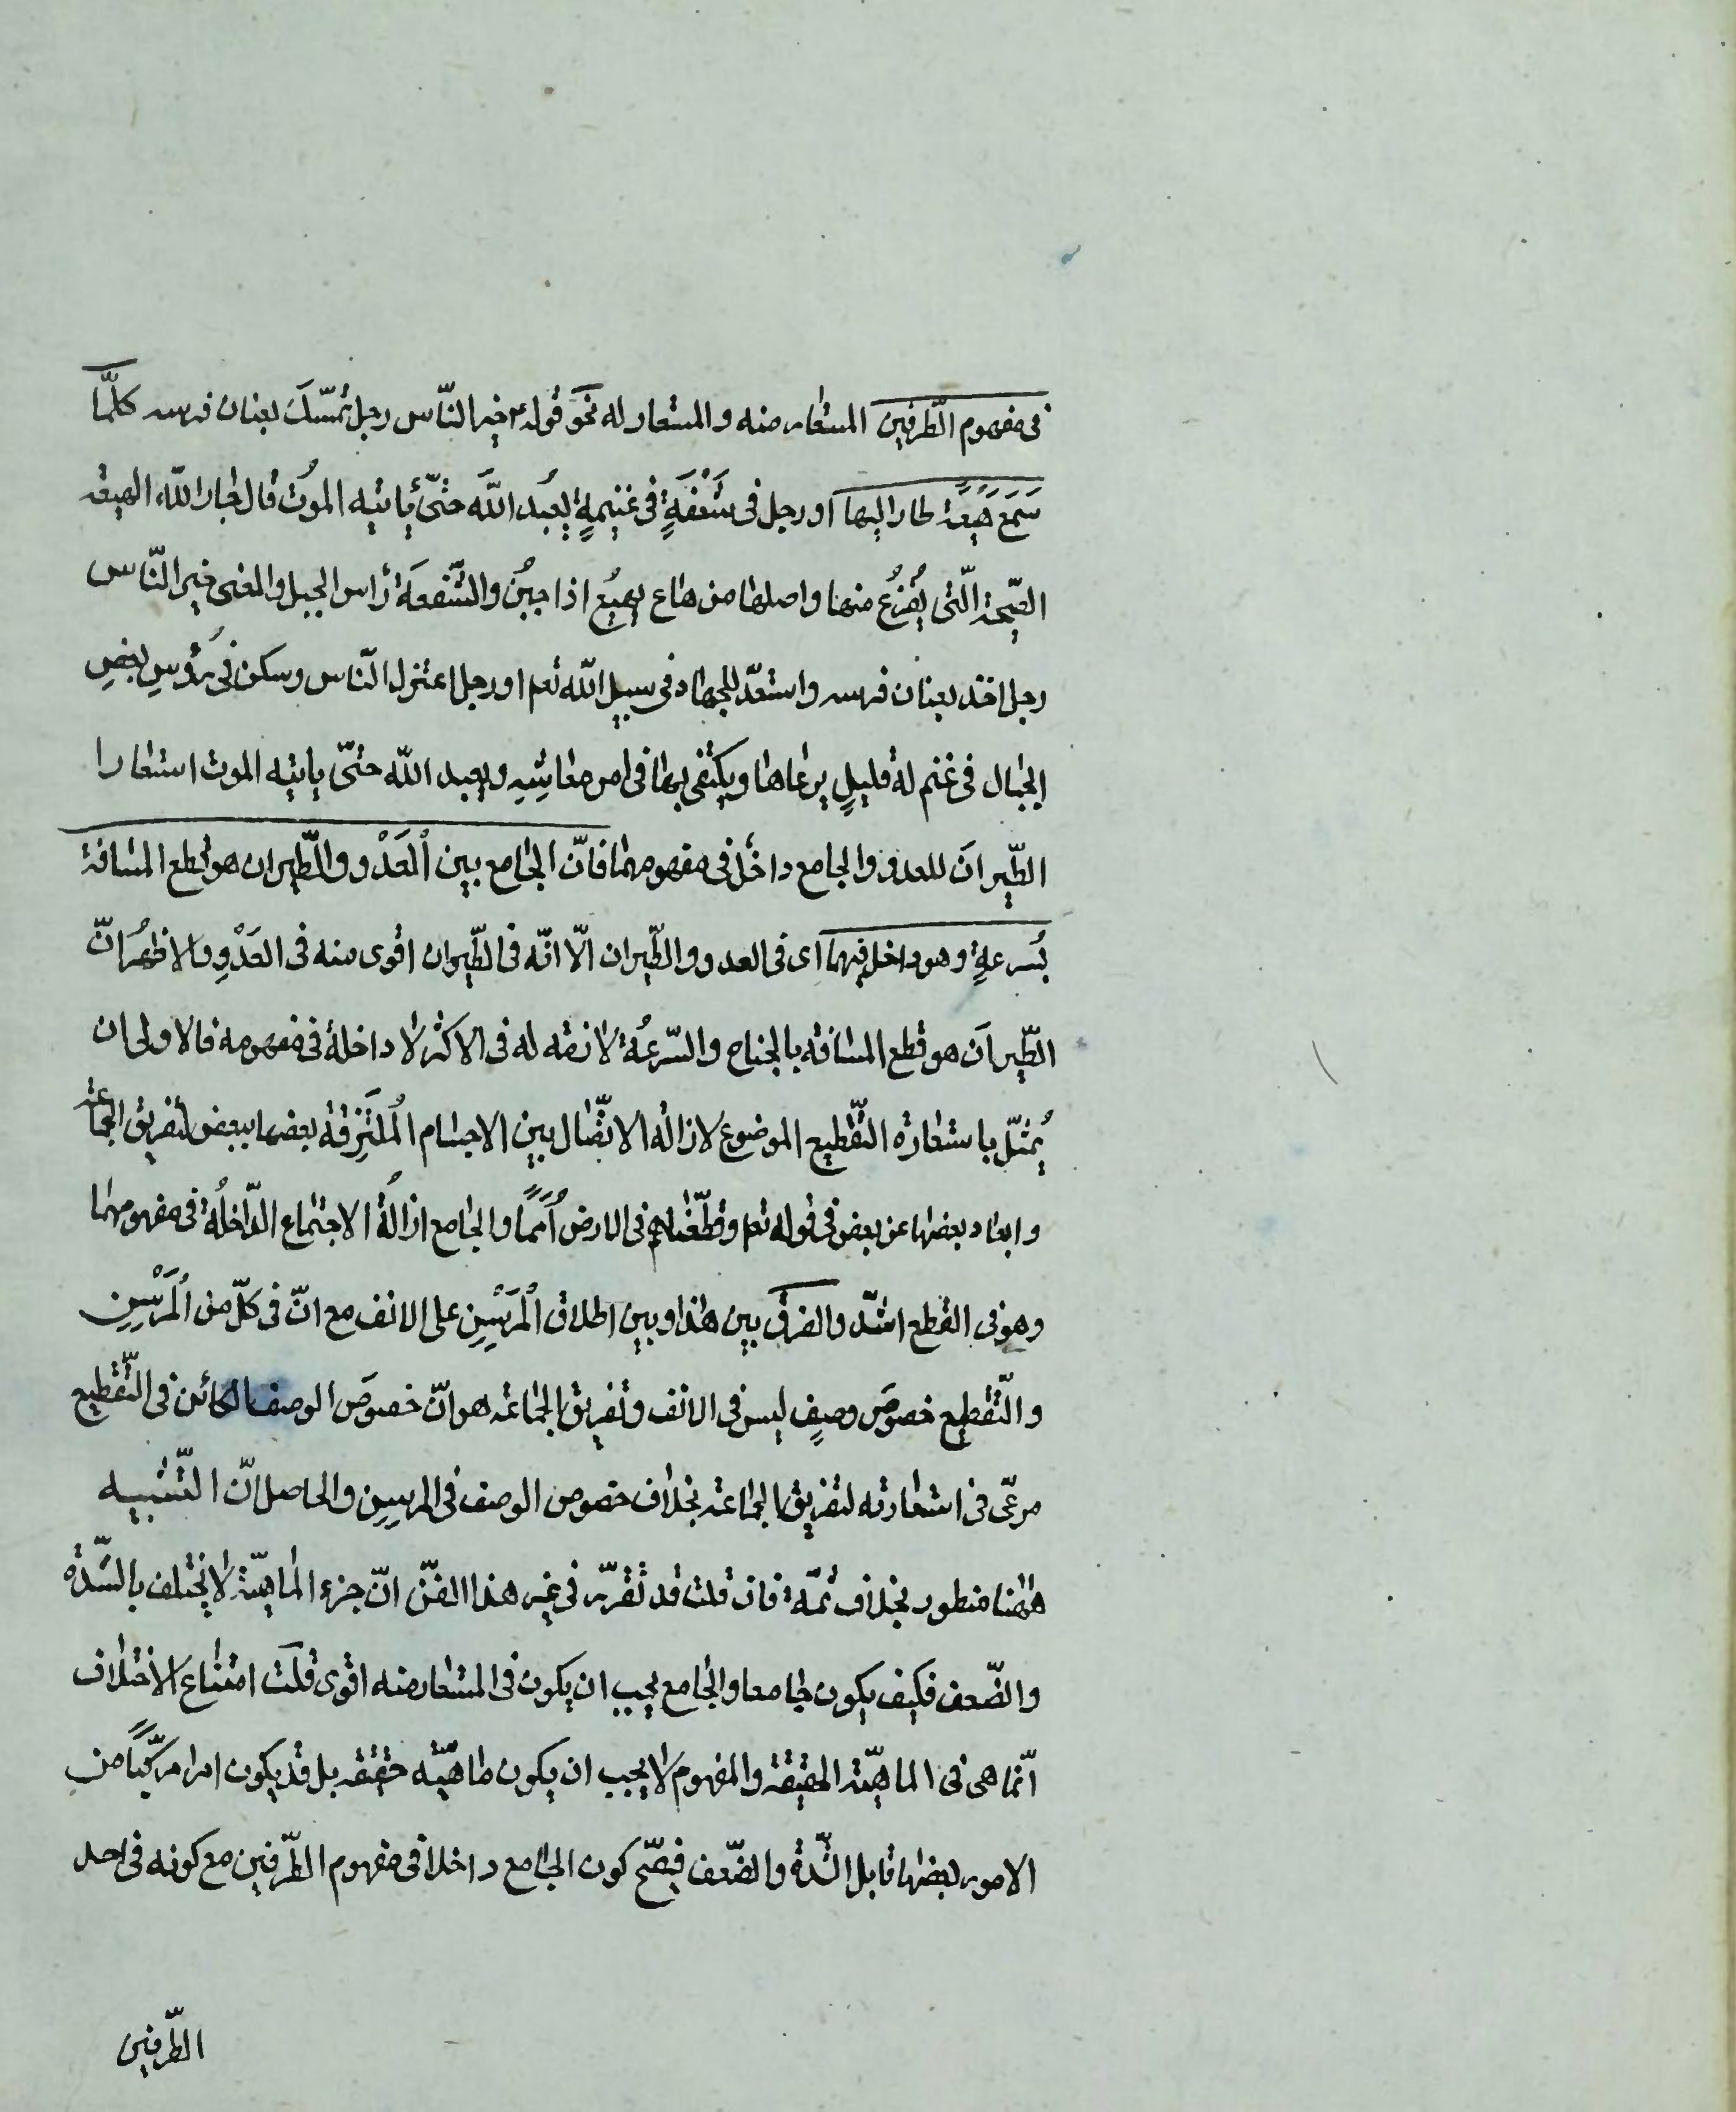 فى مفهوم الطّرفين المستعار منه والمستعار له نحو قوله ع م خير النّاس رجل تمسّك بعنان فرسه كلّما
سَمَعَ هَيْعَة طار اليها او رجل فى شَعْفَةٍ فى غنيمةٍ يعبُد اللّه حتّى يأتيه الموتُ قال جار اللّه الهيعة
الصّيحة الّتى يُفزَعُ منها واصلها من هاع يهيعُ اذا جبُن والشّعفة رأس الجبل والمعنى خير النّاس
رجل اخذ بعنان فرسه واستعدّ للجهاد فى سبيل اللّه تعم او رجل اعتزل النّاس وسكن فى رؤسِ بعضِ
الجبال فى غنم لهُ قليلٍ يرعاها ويكتفى بها فى امر معاشِهِ ويعبد اللّه حتّى يأتيه الموت استعارا
الطّيرانَ للعدو والجامع داخل فى مفهومهما فانّ الجامع بين الْعَدْو والطّيران هو قطع المسافة
بُسرعةٍ وهو داخل فيهما اى فى العدو والطّيران الّا انّه فى الطّيران اقوى منه فى العَدْوِ والاظهرُ انّ
الطّيرانَ هو قطع المسافه بالجناح والسّرعةُ لازمه له فى الاكثر لا داخلة فى مفهومه فالاولى ان
يُمثّل باستعاره التّقطيع الموضوع لازاله الاتّصال بين الاجسام المُلتَزِقة بعضها ببعض لتفريق الجماعة
وابعاد بعضها عن بعض فى قوله تعم وقطّعناهم فى الارض أُمَماً والجامع ازالةُ الاجتماع الدّاخلةُ فى مفهومهما
وهو فى القطع اشدّ والفرق بين هذا وبين اطلاق الْمَرْسِنِ على الانف مع انّ فى كلّ من الْمَرْسِنِ
والتّقطيع خصوصَ وصفٍ ليس فى الانف وتفريق الجماعة هو انّ خصوصَ الوصف الكائن فى التّقطيع
مرعىّ فى استعارته لتفريق الجماعة بخلاف خصوص الوصف فى المرسِنِ والحاصل انّ التّشبيه
ههنا منطور بخلاف ثمّة فان قلت قد تقرّر فى غير هذا الفنّ انّ جزء الماهيّة لا يختلف بالشّدّة
والضّعف فكيف يكون جامعا والجامع يجب ان يكون فى المستعار منه اقوى قلت امتناع الاختلاف
انّما هى فى الماهيّة الحقيقة والمفهوم لا يجب ان يكون ماهيّة حقيقه بل قد يكون امرا مركّباً من
الامور بعضها قابل الشّدة والضّعف فيصّح كون الجامع داخلا فى مفهوم الطّرفين مع كونه فى احد
الطّرفين